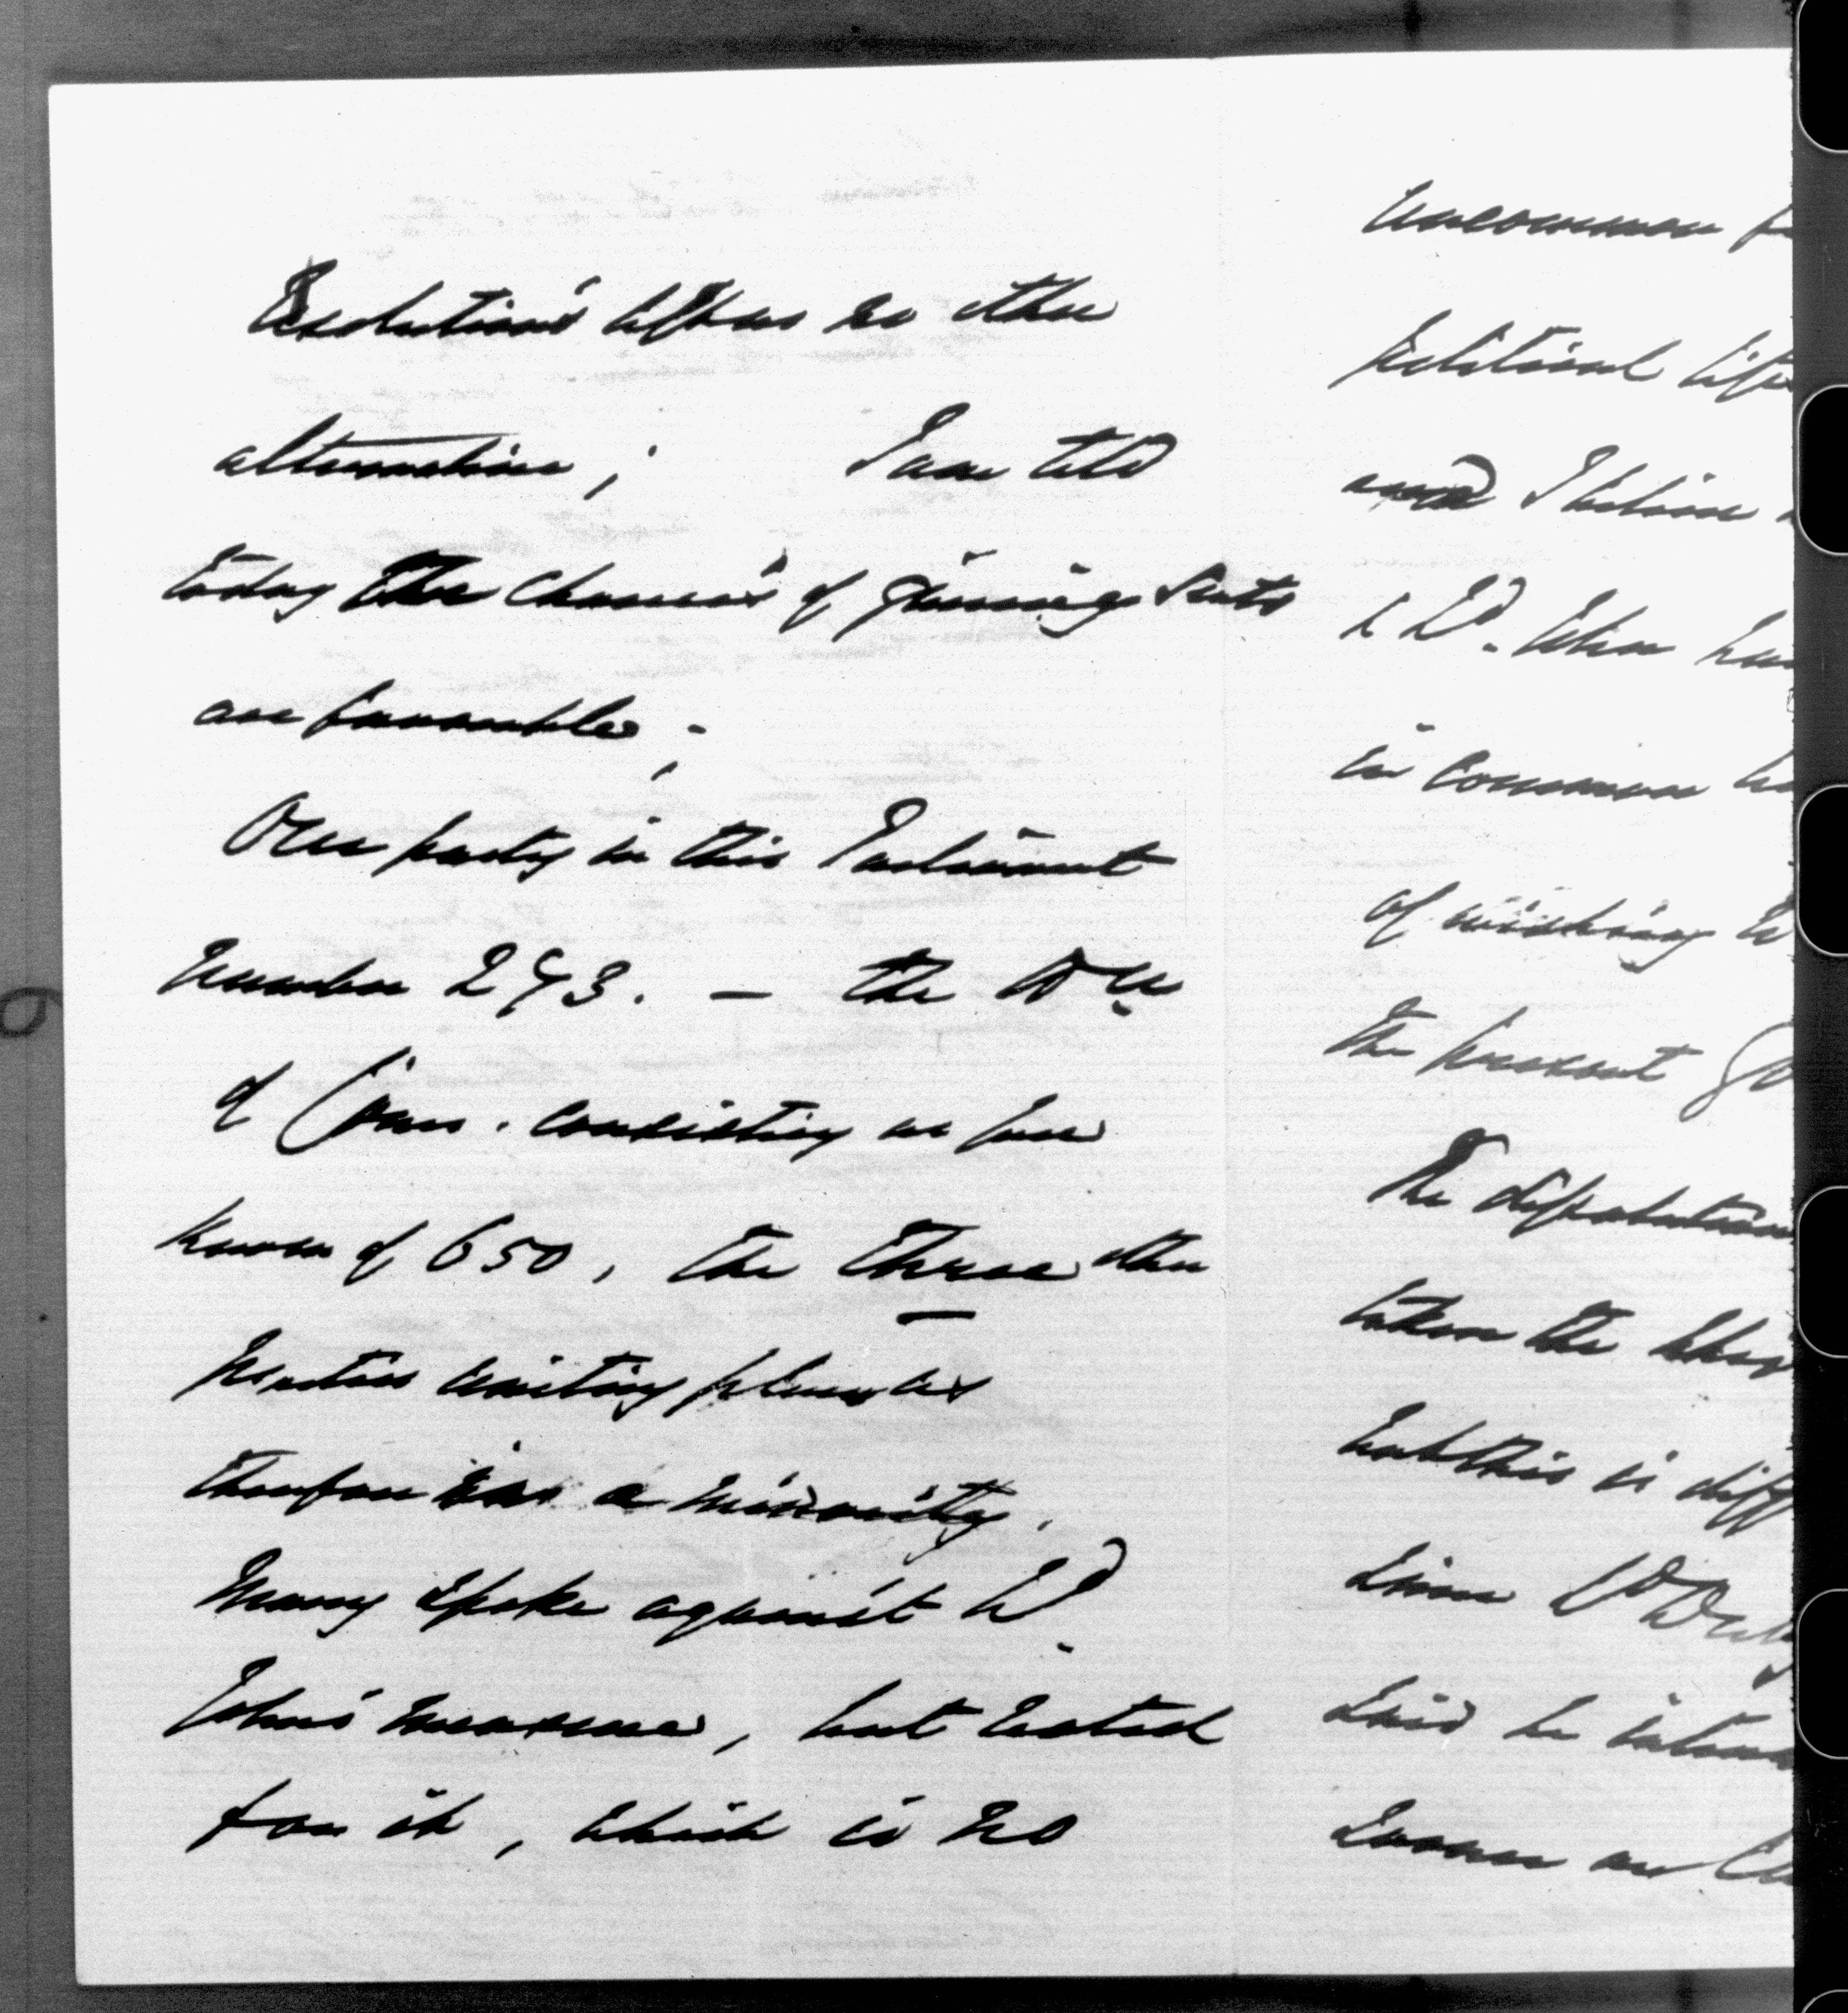 Resolutions left us no other
alternative; I am told
today the chances of gaining seats
are favourable;
Our party in this Parliament
number 293. — the Ho
of Com. consisting as you
know of 650, the three other
parties uniting places us
therefore in a minority.
Many spoke against Ld.
John's measure, but voted
for it, which is no
uncommon
political life
and I believe
Ld. John
in common
of wishing to
the present
The dissolution
taken the
but this is diff
since Ld Derby
said he